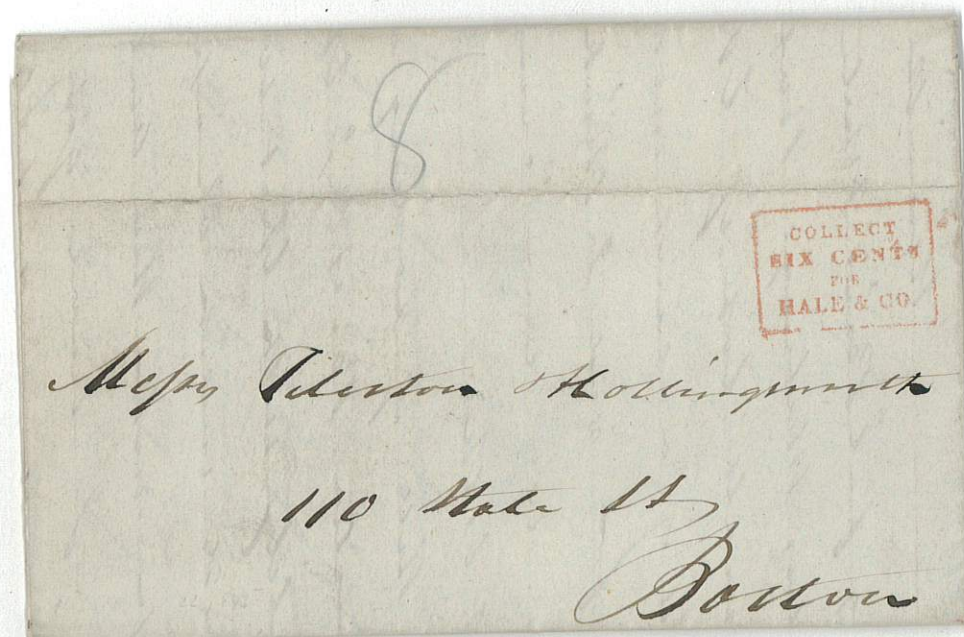 8
COLLECT
SIX CENTS
FOR
HALE & CO.
Messrs Tileston & Hollingsworth
110 State St
Boston